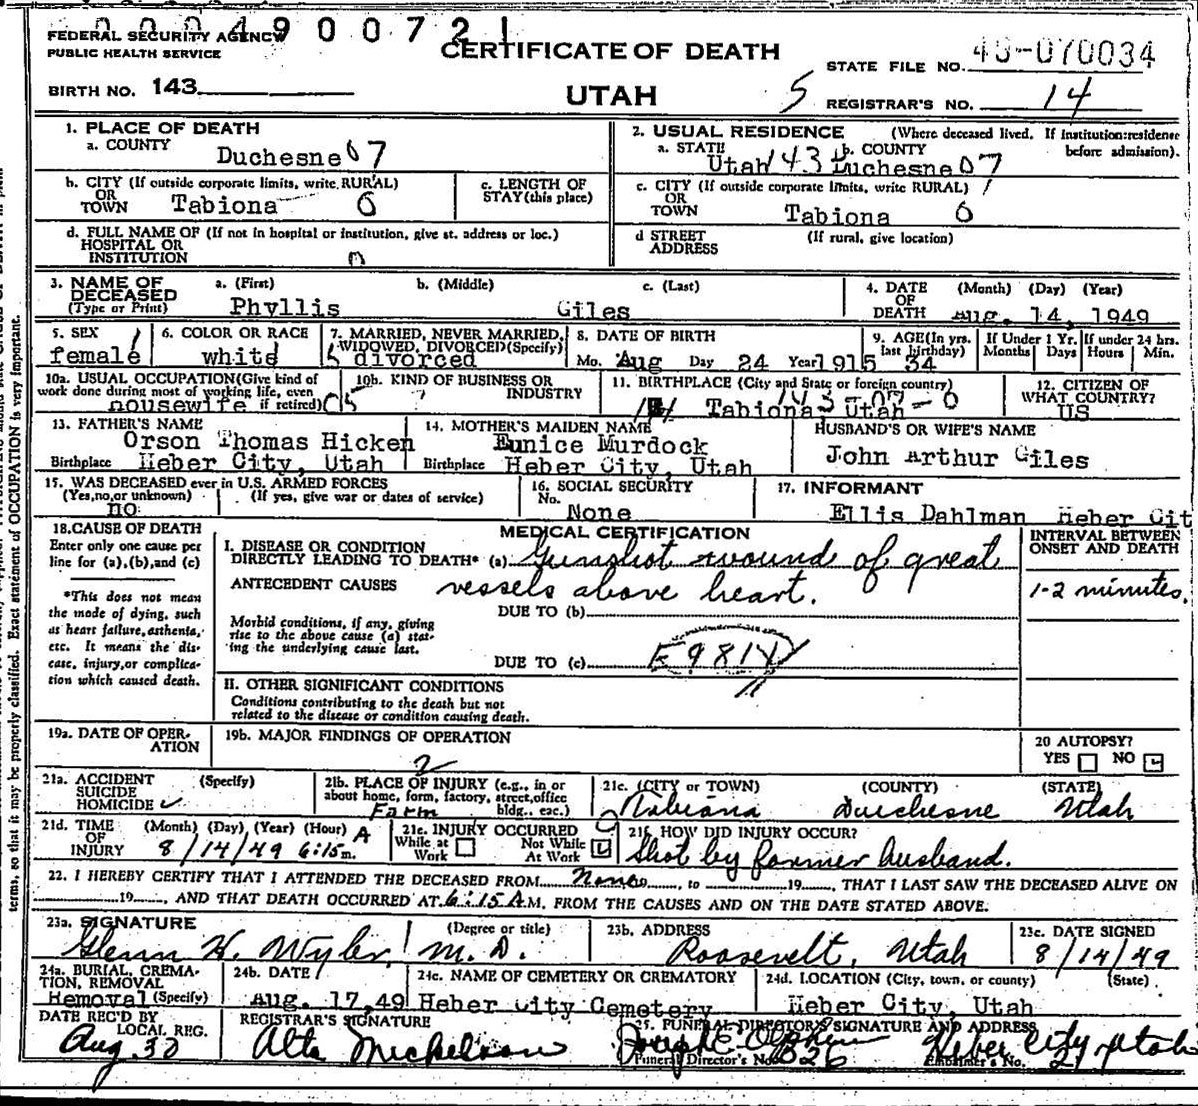 0 0 0 4 9 0 0 7 2 1
FEDERAL SECURITY AGENCY
PUBLIC HEALTH SERVICE
CERTIFICATE OF DEATH
STATE FILE NO. 49-070034
BIRTH NO. 143
UTAH
5 REGISTRAR'S NO. 14
1. PLACE OF DEATH
a. COUNTY
Duchesne 07
2. USUAL RESIDENCE (Where deceased lived. If institution:residence before admission).
a. STATE b. COUNTY
Utah 143 Duchesne 07
b. CITY (If outside corporate limits, write RURAL)
OR
TOWN Tabiona 6
c. LENGTH OF
STAY (this place)
c. CITY (If outside corporate limits, write RURAL) 1
OR
TOWN Tabiona 6
d. FULL NAME OF (If not in hospital or institution, give st. address or loc.)
HOSPITAL OR
INSTITUTION 0
d STREET (If rural, give location)
ADDRESS
3. NAME OF DECEASED (Type or Print)
a. (First) b. (Middle) c. (Last)
Phyllis Giles
4. DATE OF DEATH (Month) (Day) (Year)
Aug. 14, 1949
5. SEX 1
female
6. COLOR OR RACE
white
7. MARRIED, NEVER MARRIED, WIDOWED, DIVORCED (Specify)
5 divorced
8. DATE OF BIRTH
Mo. Aug Day 24 Year 1915
9. AGE (In yrs. last birthday) If Under 1 Yr. If under 24 hrs.
Months Days Hours Min.
34
10a. USUAL OCCUPATION (Give kind of work done during most of working life, even if retired)
housewife
10b. KIND OF BUSINESS OR INDUSTRY
11. BIRTHPLACE (City and State or foreign country)
143-07-0
Tabiona, Utah
12. CITIZEN OF WHAT COUNTRY?
US
13. FATHER'S NAME
Orson Thomas Hicken
Birthplace Heber City, Utah
14. MOTHER'S MAIDEN NAME
Eunice Murdock
Birthplace Heber City, Utah
HUSBAND'S OR WIFE'S NAME
John Arthur Giles
15. WAS DECEASED ever in U.S. ARMED FORCES
(Yes,no,or unknown) (If yes, give war or dates of service)
no
16. SOCIAL SECURITY
No.
None
17. INFORMANT
Ellis Dahlman Heber Cit
18. CAUSE OF DEATH
Enter only one cause per line for (a),(b),and (c)
*This does not mean the mode of dying, such as heart failure, asthenia, etc. It means the disease, injury, or complication which caused death.
MEDICAL CERTIFICATION
INTERVAL BETWEEN ONSET AND DEATH
I. DISEASE OR CONDITION
DIRECTLY LEADING TO DEATH* (a) Gunshot wound of great
ANTECEDENT CAUSES vessels above heart.
1-2 minutes.
DUE TO (b)
Morbid conditions, if any, giving rise to the above cause (a) stating the underlying cause last.
DUE TO (c) E981X
II. OTHER SIGNIFICANT CONDITIONS
Conditions contributing to the death but not
related to the disease or condition causing death.
19a. DATE OF OPERATION
19b. MAJOR FINDINGS OF OPERATION
2
20 AUTOPSY?
YES NO
21a. ACCIDENT (Specify)
SUICIDE
HOMICIDE
21b. PLACE OF INJURY (e.g., in or about home, form, factory, street,office bldg., eac.)
Farm
21c. (CITY or TOWN) (COUNTY) (STATE)
Tabiona Duchesne Utah
21d. TIME OF INJURY (Month) (Day) (Year) (Hour)
8/14/49 6:15 A m.
21e. INJURY OCCURRED
While at Work Not While At Work
21f. HOW DID INJURY OCCUR?
Shot by former husband.
22. I HEREBY CERTIFY THAT I ATTENDED THE DECEASED FROM None, to 19, THAT I LAST SAW THE DECEASED ALIVE ON
19, AND THAT DEATH OCCURRED AT 6:15 A.M. FROM THE CAUSES AND ON THE DATE STATED ABOVE.
23a. SIGNATURE (Degree or title)
Glenn H. Wyler, M.D.
23b. ADDRESS
Roosevelt, Utah
23c. DATE SIGNED
8/14/49
24a. BURIAL, CREMATION, REMOVAL
Removal (Specify)
24b. DATE
Aug. 17,49
24c. NAME OF CEMETERY OR CREMATORY
Heber City Cemetery
24d. LOCATION (City, town, or county) (State)
Heber City, Utah
DATE REC'D BY LOCAL REG.
Aug 30
REGISTRAR'S SIGNATURE
Alta Mickelson
25. FUNERAL DIRECTOR'S SIGNATURE AND ADDRESS
Joseph E Olpin Heber City, Utah
Funeral Director's No. 826 Embalmer's No. 27
terms, so that it may be properly classified. Exact statement of OCCUPATION is very important.